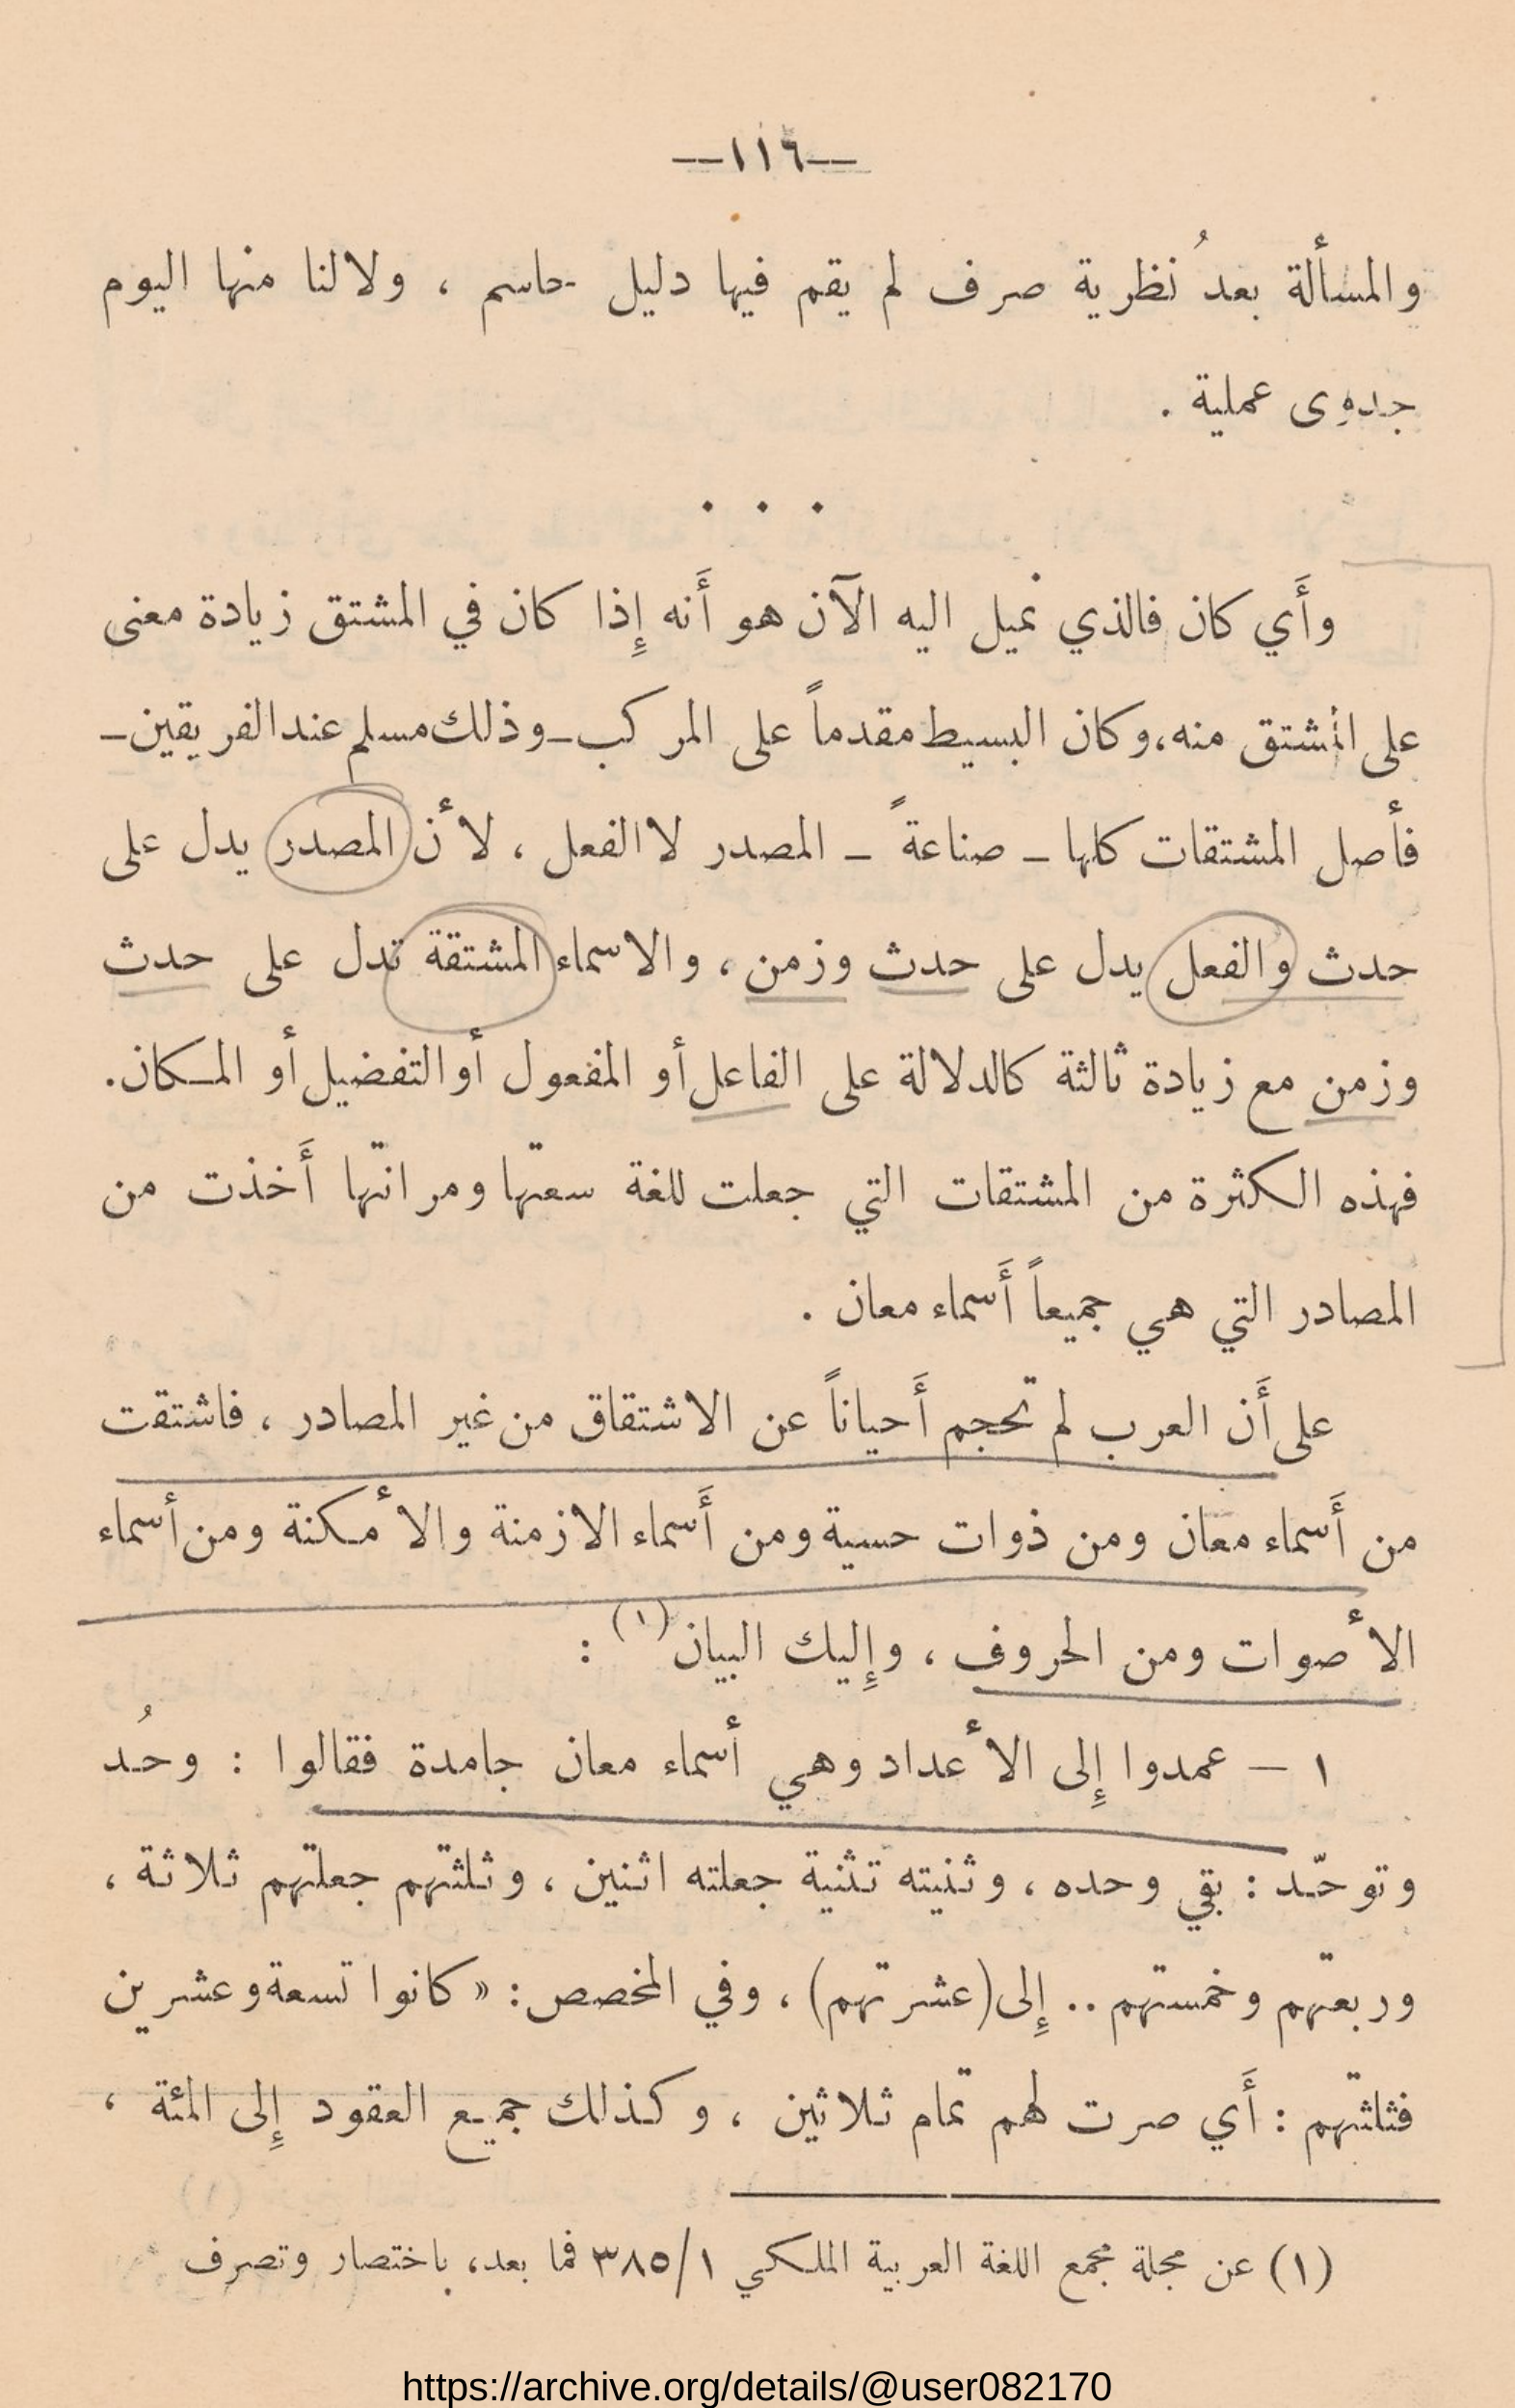 —١١٦—
والمسألة بعدُ نظرية صرف لم يقم فيها دليل حاسم ، ولا لنا منها اليوم
جدوى عملية .
. . .
وأَي كان فالذي نميل اليه الآن هو أَنه إِذا كان في المشتق زيادة معنى
على المشتق منه، وكان البسيط مقدماً على المركب ـ وذلك مسلم عند الفريقين ـ
فأصل المشتقات كلها ـ صناعةً ـ المصدر لا الفعل ، لأن المصدر يدل على
حدث والفعل يدل على حدث وزمن ، والاسماء المشتقة تدل على حدث
وزمن مع زيادة ثالثة كالدلالة على الفاعل أو المفعول أو التفضيل أو المكان.
فهذه الكثرة من المشتقات التي جعلت للغة سعتها ومرانتها أَخذت من
المصادر التي هي جميعاً أَسماء معان .
على أَن العرب لم تحجم أَحياناً عن الاشتقاق من غير المصادر ، فاشتقت
من أَسماء معان ومن ذوات حسية ومن أَسماء الازمنة والأمكنة ومن أسماء
الأصوات ومن الحروف ، وإِليك البيان (١) :
١ — عمدوا إِلى الأعداد وهي أسماء معان جامدة فقالوا : وحُد
وتوحّد : بقي وحده ، وثنيته تثنية جعلته اثنين ، وثلثتهم جعلتهم ثلاثة ،
وربعتهم وخمستهم .. إِلى (عشرتهم) ، وفي المخصص : « كانوا تسعة وعشرين
فثلثتهم : أَي صرت لهم تمام ثلاثين ، وكذلك جميع العقود إِلى المئة ،
(١) عن مجلة مجمع اللغة العربية الملكي ٣٨٥/١ فما بعد، باختصار وتصرف
https://archive.org/details/@user082170